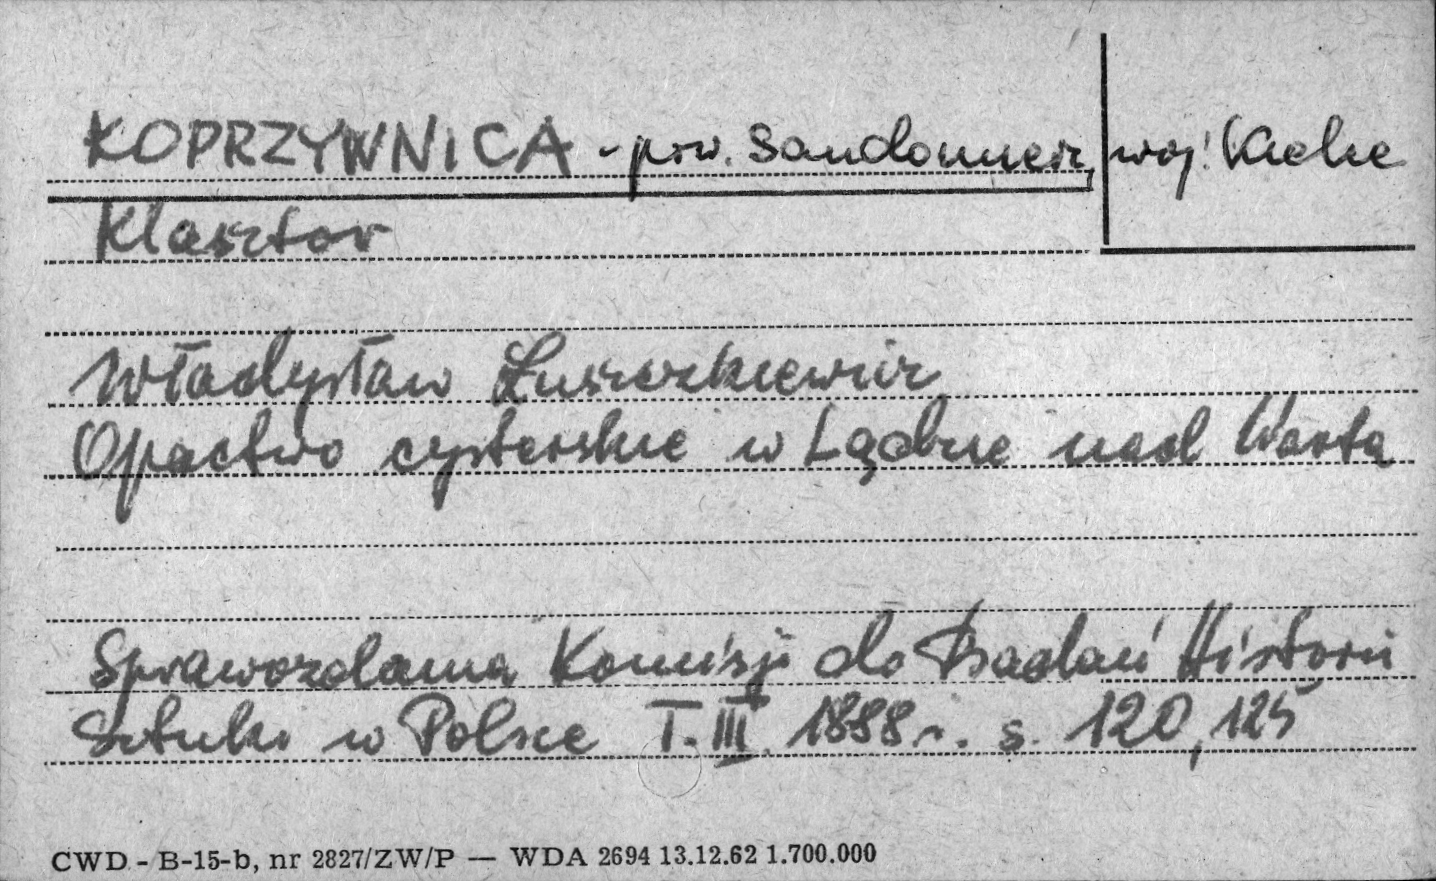 KOPRZYWNICA - pow. Sandomierz, woj. Kielce
Klasztor
Władysław Łuszczkiewicz
Opactwo cysterskie w Lądzie nad Wartą
Sprawozdania Komisji do Badań Historii
Sztuki w Polsce T. III. 1888 r. s. 120, 125
CWD - B-15-b, nr 2827/ZW/P — WDA 2694 13.12.62 1.700.000